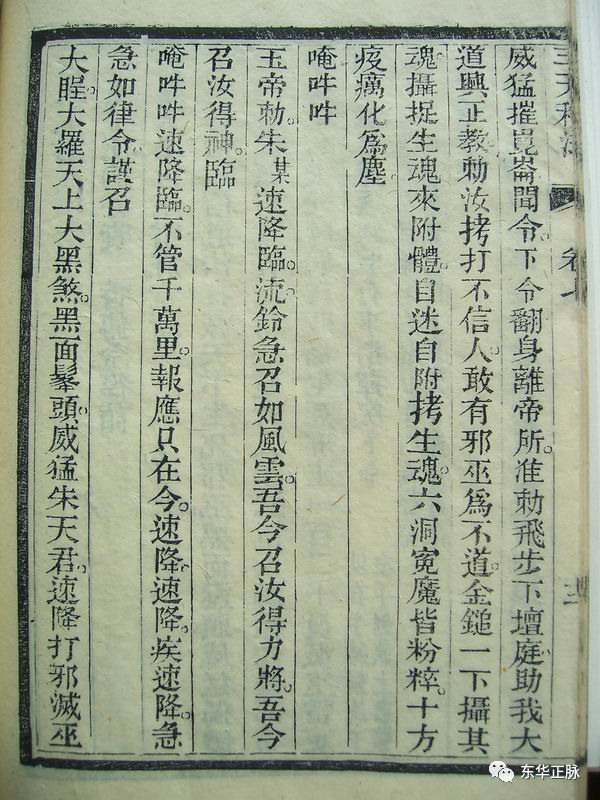 威猛摧崑崙聞令下令翻身離帝所准勅飛步下壇庭助我大
道興正教勅汝拷打不信人敢有邪巫爲不道金鎚一下攝其
魂攝捉生魂來附體自迷自附拷生魂六洞寃魔皆粉粹十方
疫癘化爲塵
唵吽吽
玉帝勅朱某速降臨流鈴急召如風雲吾今召汝得力將吾今
召汝得神臨
唵吽吽速降臨不管千萬里報應只在今速降速降疾速降急
急如律令謹召
大𥇥大羅天上大黑煞黑面鬅頭威猛朱天君速降打邪滅巫
东华正脉